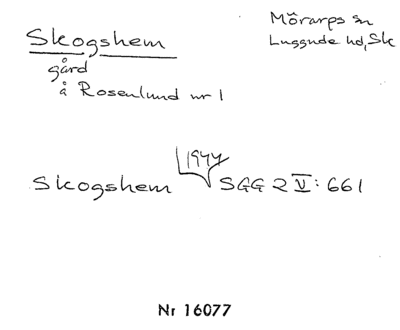 Skogshem
Mörarps sn
Luggude hd, Sk
gård
å Rosenlund nr 1
Skogshem 1944 SGG 2 V: 661
Nr 16077